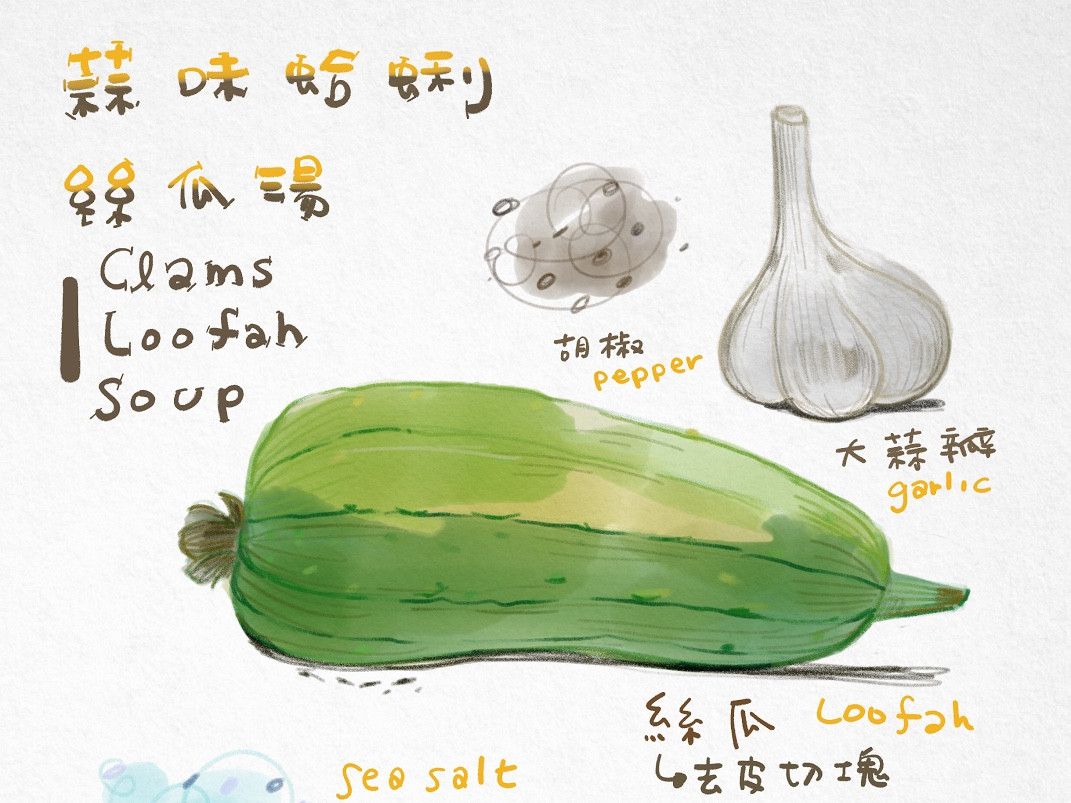 蒜味蛤蜊
絲瓜湯
Clams
Loofah
Soup
胡椒
pepper
大蒜瓣
garlic
絲瓜 Loofah
↳去皮切塊
sea salt